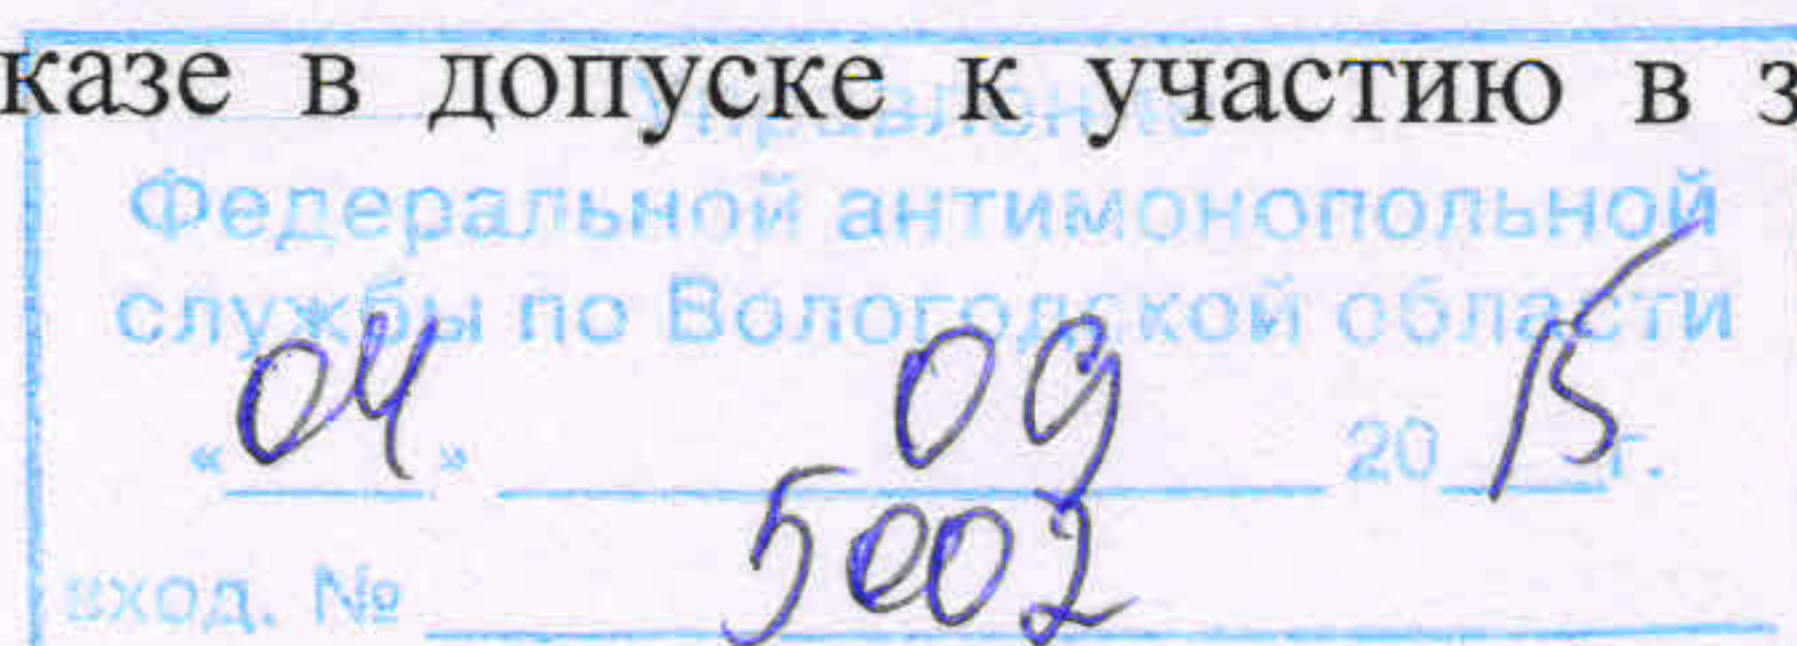 казе в допуске к участию в з
Управление
Федеральной антимонопольной
службы по Вологодской области
«04» 09 2015 г.
вход. № 5002